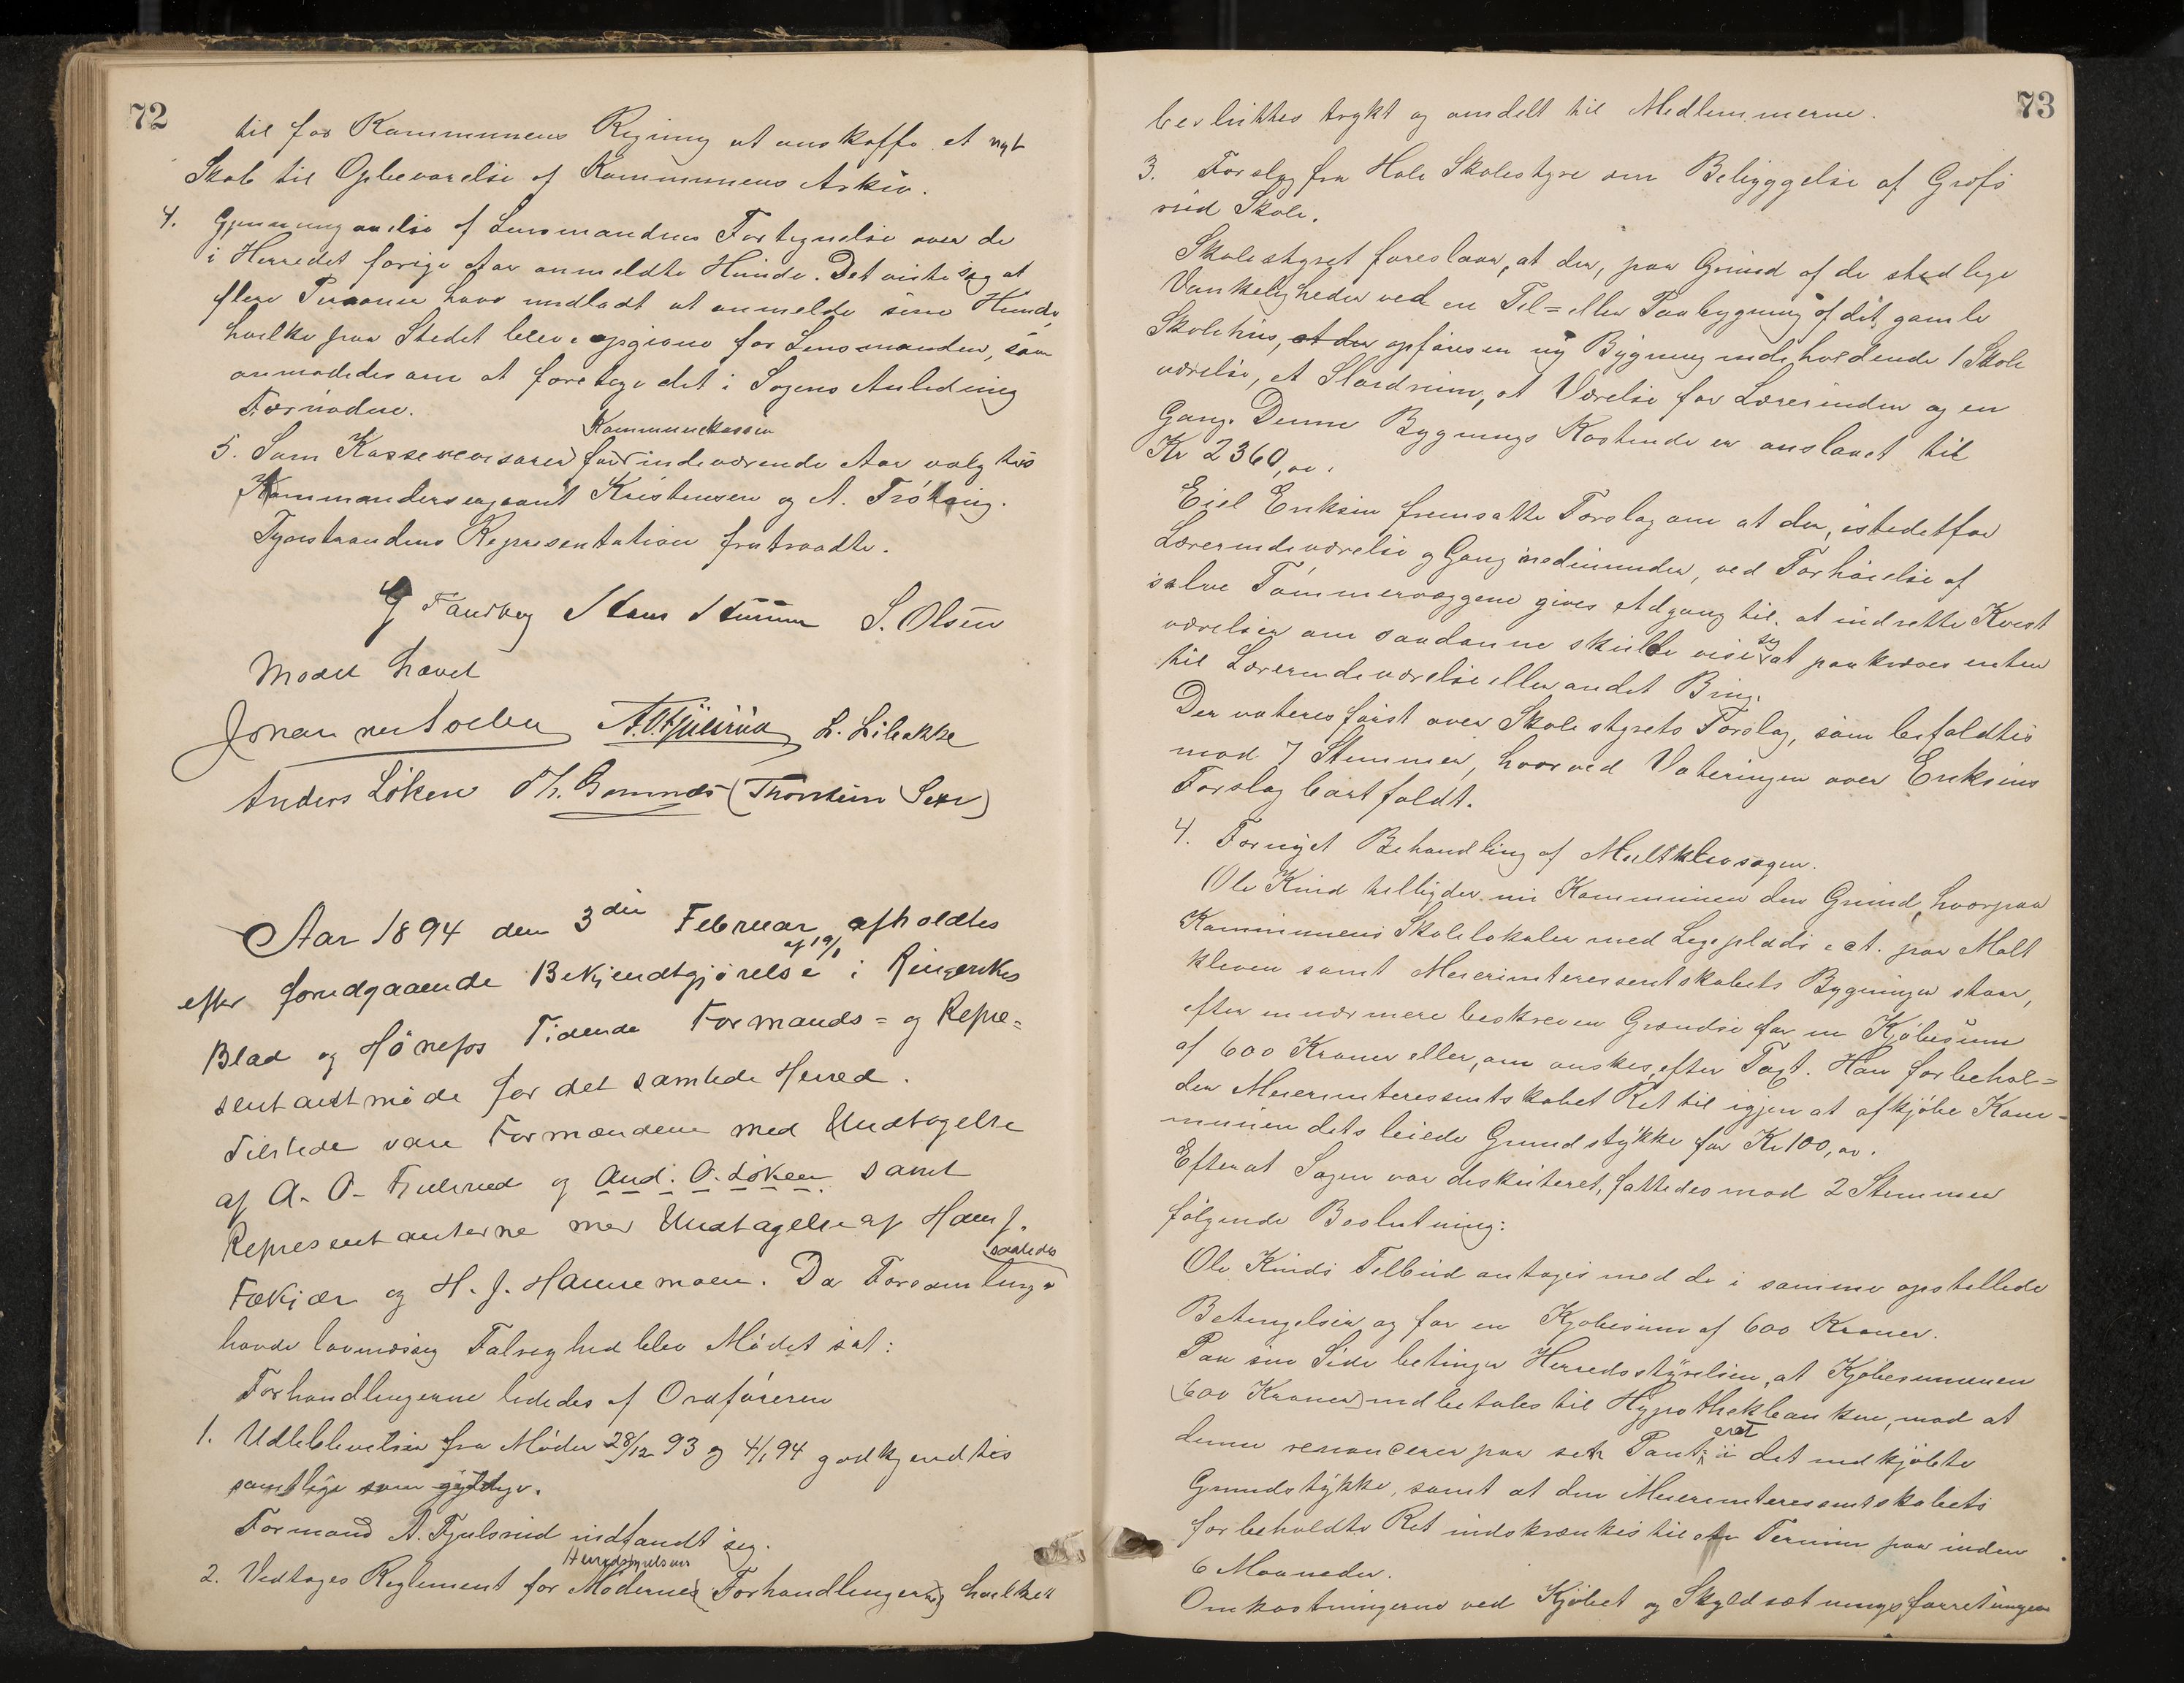 72
til for Kommunens Regning at anskaffe et nyt
Skab til Opbevarelse af Kommunens Arkiv.
4. Gjennemgaaelse af Lensmandens Fortegnelse over de
i Herredet forrige Aar anmeldte Hunde. Det viste sig at
flere Personer havde undladt at anmelde sine Hunde,
hvilke paa Stedet blev opgivne for Lensmanden, som
anmodedes om at foretage det i Sagens Anledning
Fornødne.
5. Som Kasserevisorer for Kommunekassen indeværende Aar valgtes
Kommandersergeant Kristensen og A. Frøhaug.
Tyristrandens Repræsentation fratraadte.
G Fandberg Hans S. Olsen
Mødet hævet
A. O. Fjulsrud L. Libakke
Anders Løken Th. Gomnæs (Thorstein Sexe)
Aar 1894 den 3die Februar afholdtes
efter forudgaaende Bekjendtgjørelse af 19/1 i Ringerikes
Blad og Hønefos Tidende Formands= og Repræ=
sentantmøde for det samlede Herred.
Tilstede vare Formændene med Undtagelse
af A. O. Fjulsrud og And. O. Løken samt
Repræsentanterne med Undtagelse af Hans J.
Fækjær og H. J. Hannemoen. Da Forsamlingen saaledes
havde lovmæssig Talrighed blev Mødet sat:
Forhandlingerne lededes af Ordføreren
1. Udskrivelser fra Møder 28/12 93 og 4/1 94 godkjendtes
samtlige som gyldige.
Formand A. Fjulsrud indfandt sig.
2. Vedtoges Reglement for Herredsstyrelsens Mødernes (Forhandlingerne) hvilket
73
besluttes trykt og omdelt til Medlemmerne.
3. Forslag fra Hole Skolestyre om Bebyggelse af Grøfs
rud Skole.
Skolestyret foreslaar, at der, paa Grund af de stedlige
Vanskeligheder ved en Til= eller Paabygning af det gamle
Skolehus, at der opføres en ny Bygning indeholdende 1 Skole
værelse, et Sløidrum, et Værelse for Lærerinden og en
Gang. Denne Bygnings Kostende er anslaaet til
Kr 2360,00.
Eiel Eriksen fremsatte Forslag om at der, istedetfor
Lærerindeværelse og Gang nedenunder, ved Forhøielse af
selve Tømmervæggene gives Adgang til at indrette Kvist
værelser om saadanne skulde vise sig at paakræves enten
til Lærerindeværelse eller andet Brug.
Der voteres først over Skolestyrets Forslag, som bifaldtes
mod 7 Stemmer, hvorved Voteringen over Eriksens
Forslag bortfaldt.
4. Fornyet Behandling af Multklevsagen.
Ole Kind tilbyder nu Kommunen den Grund, hvorpaa
Kommunens Skolelokaler med Legeplads ect. paa Molt
kleven samt Meieriinteressentskabets Bygninger staar,
efter en nærmere beskreven Grændse for en Kjøbesum
af 600 Kroner eller, om ønskes, efter Taxt. Han forbehol=
der Meieriinteressentskabet Ret til igjen at afkjøbe Kom=
munen dets leiede Grundstykke for Kr 100,00.
Efterat Sagen var diskuteret, fattedes mod 2 Stemmer
følgende Beslutning:
Ole Kinds Tilbud antages med de i samme opstillede
Betingelser og for en Kjøbesum af 600 Kroner.
Paa sin Side betinger Herredsstyrelsen, at Kjøbesummen
(600 Kroner) indbetales til Hypothekbanken, mod at
denne renoncerer paa sin Panteret i det indkjøbte
Grundstykke, samt at den Meieriinteressentskabets
forbeholdte Ret indskrænkes til en Termin paa inden
6 Maaneder.
Omkostningerne ved Kjøbet og Skyldsætningsforretningen